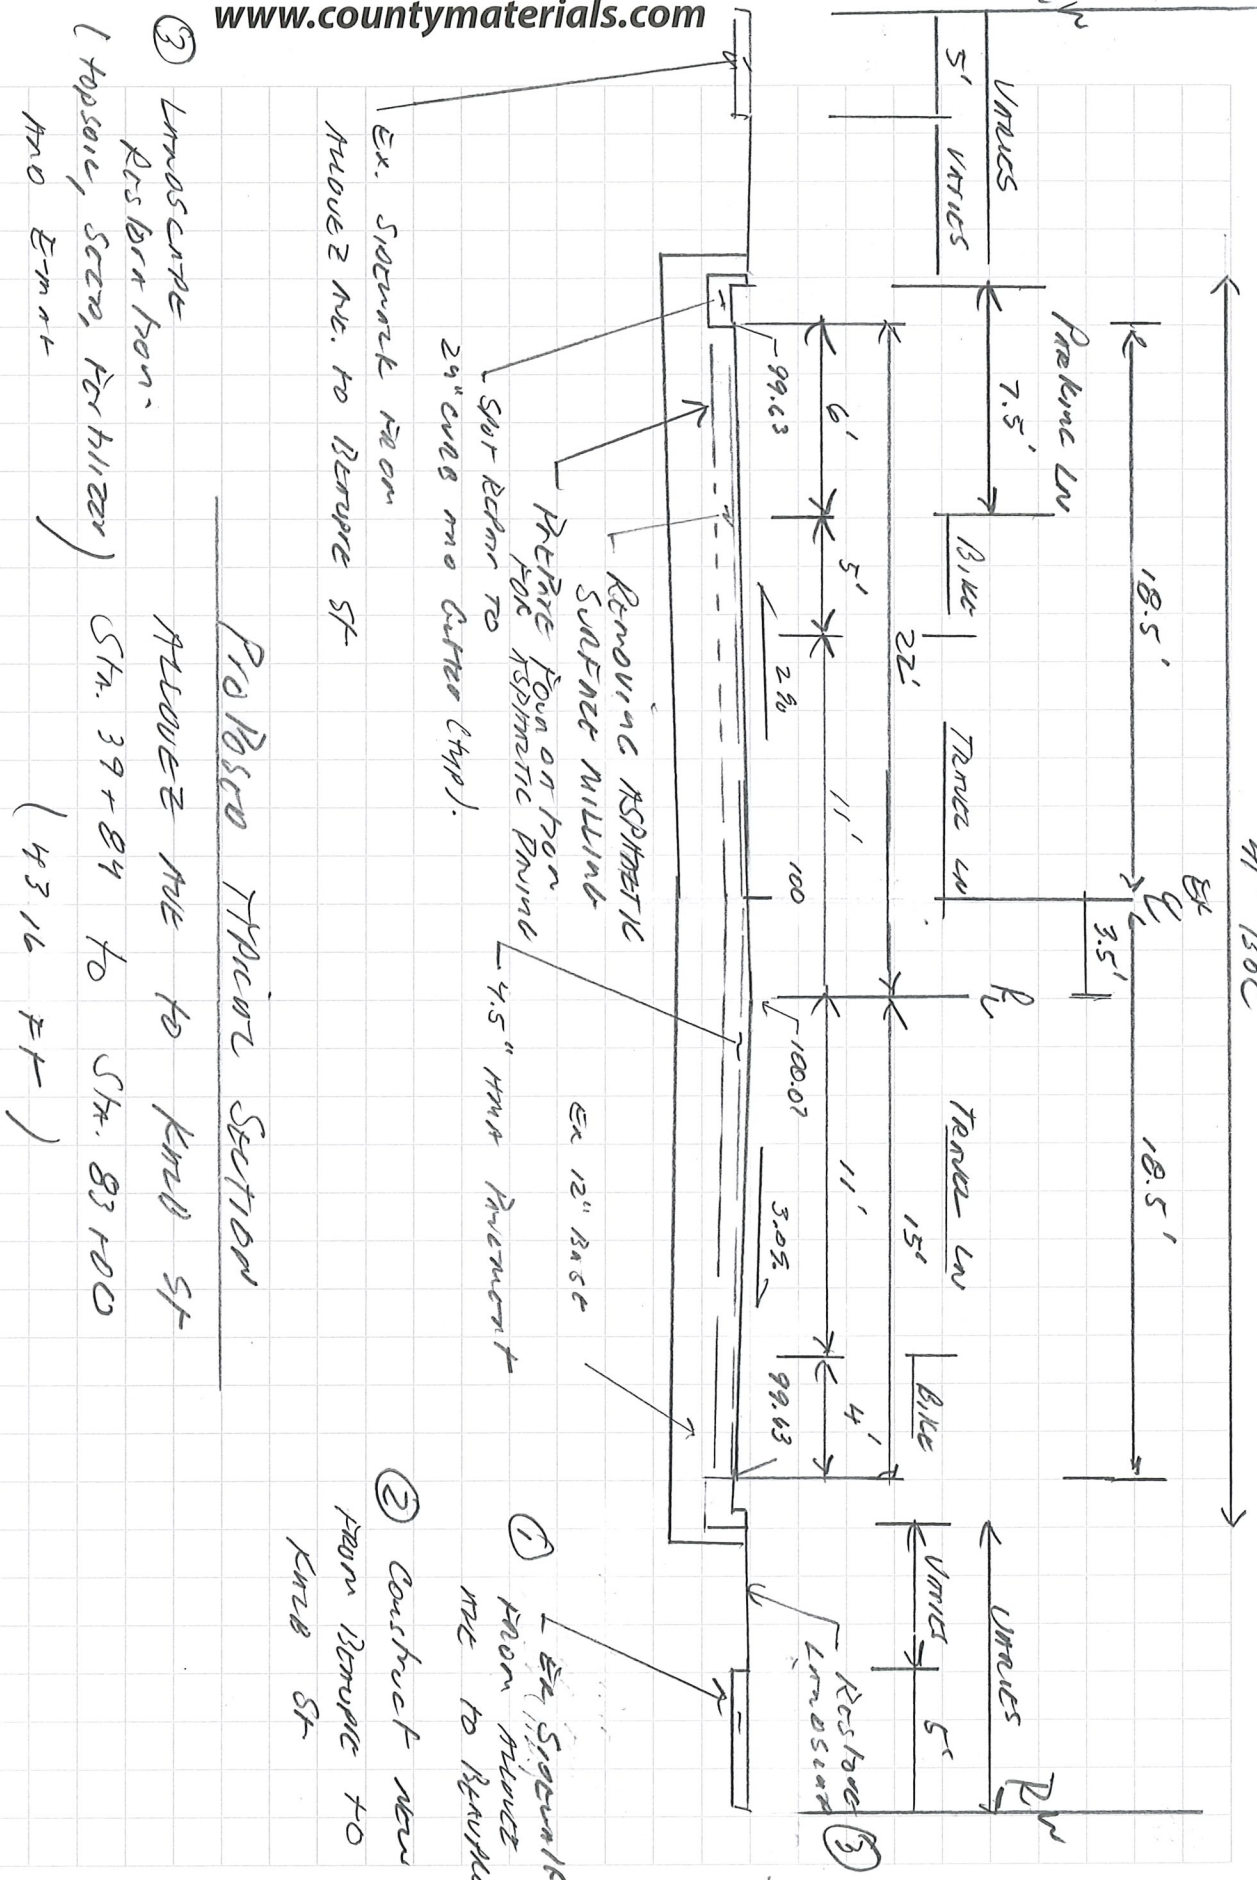 www.countymaterials.com
41' BOC
18.5'
Ex
18.5'
3.5'
RW
VARIES
PARKING LN
7.5'
BIKE
TRAVEL LN
TRAVEL LN
BIKE
VARIES
5'
VARIES
22'
15'
VARIES
5'
6'
5'
11'
11'
4'
99.63
2%
100
100.07
3.0%
99.63
Restore
Landscape
③
Removing Asphaltic
Surface Milling
Prepare Foundation
For Asphaltic Paving
Ex 12" Base
4.5" HMA Pavement
Spot Repair to
24" Curb and Gutter (typ).
Ex. Sidewalk From
Allouez Ave. to Beaupre St
① Ex. Sidewalk
From Allouez
Ave to Beaupre
② Construct New
From Beaupre to
Kalb St
③ Landscape
Restoration-
(topsoil, Seed, Fertilizer
And E-mat)
Proposed Typical Section
Allouez Ave to Kalb St
Sta. 39+84 to Sta. 83+00
(4316 Ft)